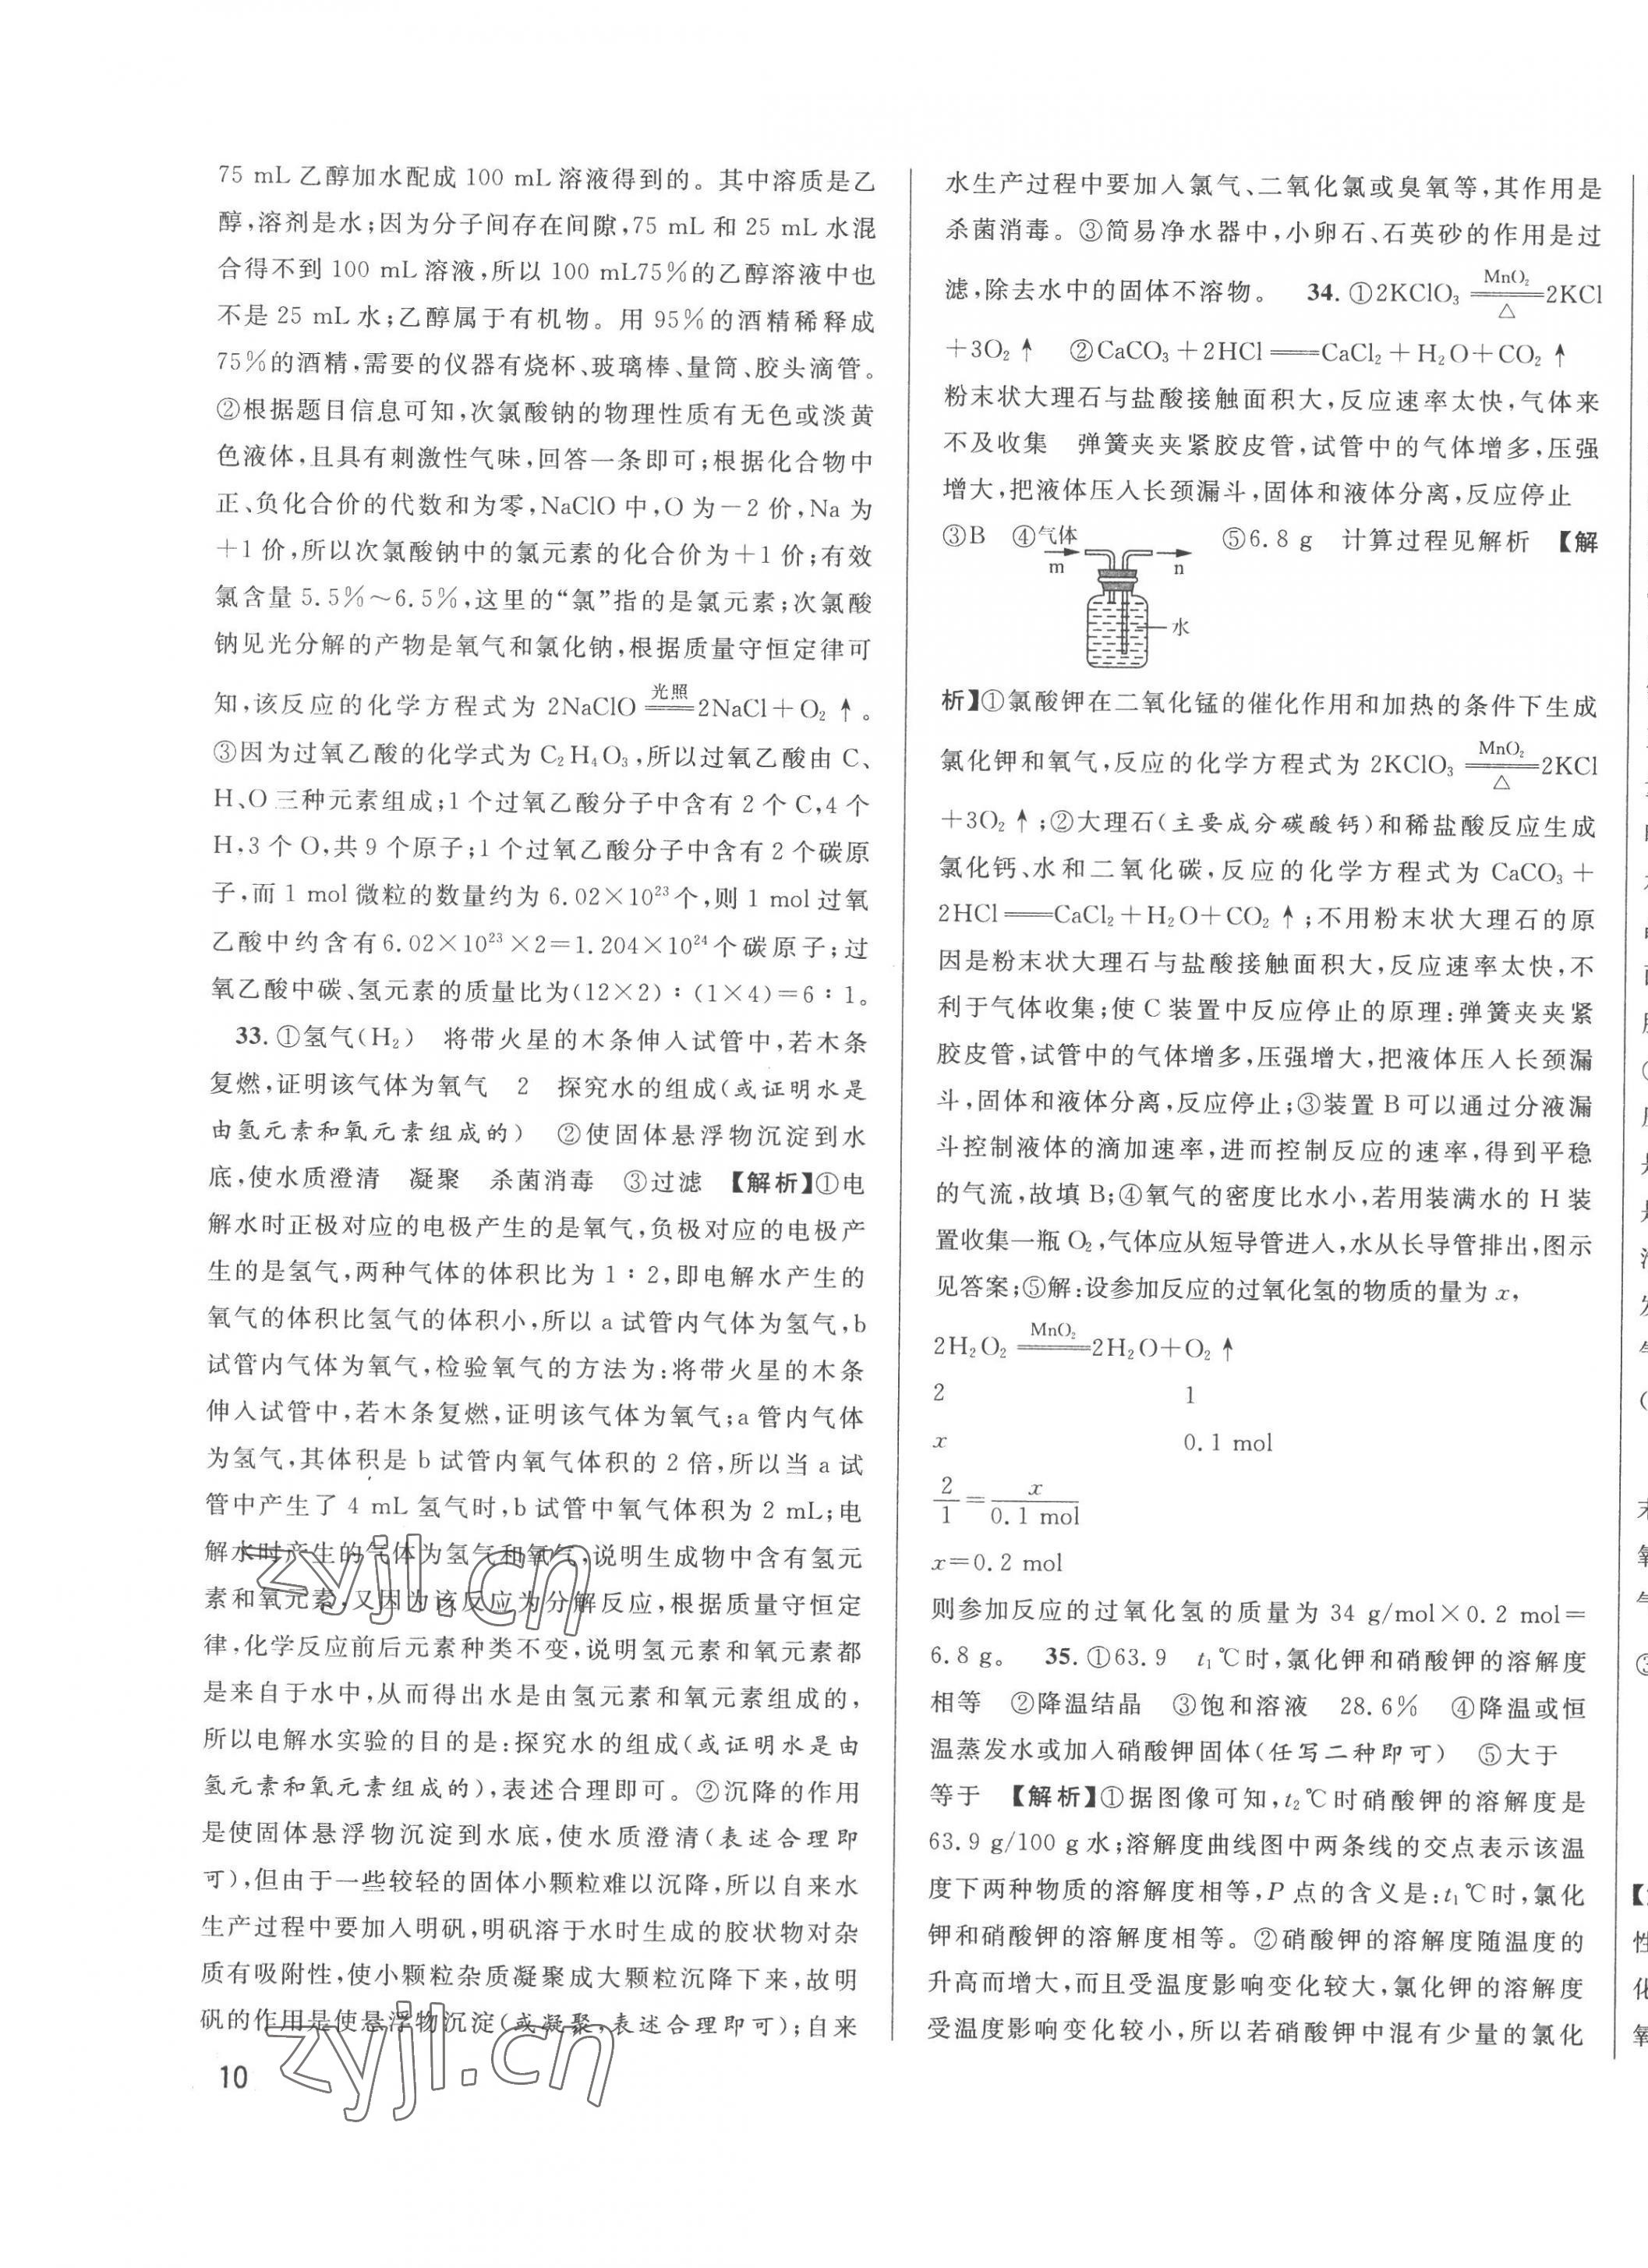 75 mL 乙醇加水配成 100 mL 溶液得到的。其中溶质是乙
醇,溶剂是水;因为分子间存在间隙,75 mL 和 25 mL 水混
合得不到 100 mL 溶液,所以 100 mL75%的乙醇溶液中也
不是 25 mL 水;乙醇属于有机物。用 95%的酒精稀释成
75%的酒精,需要的仪器有烧杯、玻璃棒、量筒、胶头滴管。
②根据题目信息可知,次氯酸钠的物理性质有无色或淡黄
色液体,且具有刺激性气味,回答一条即可;根据化合物中
正、负化合价的代数和为零,NaClO 中,O 为-2 价,Na 为
+1 价,所以次氯酸钠中的氯元素的化合价为+1 价;有效
氯含量 5.5%～6.5%,这里的“氯”指的是氯元素;次氯酸
钠见光分解的产物是氧气和氯化钠,根据质量守恒定律可
知,该反应的化学方程式为 2NaClO ══光照══ 2NaCl+O₂↑。
③因为过氧乙酸的化学式为 C₂H₄O₃,所以过氧乙酸由 C、
H、O 三种元素组成;1 个过氧乙酸分子中含有 2 个 C,4 个
H,3 个 O,共 9 个原子;1 个过氧乙酸分子中含有 2 个碳原
子,而 1 mol 微粒的数量约为 6.02×10²³个,则 1 mol 过氧
乙酸中约含有6.02×10²³×2=1.204×10²⁴个碳原子;过
氧乙酸中碳、氢元素的质量比为(12×2)∶(1×4)=6∶1。
33. ①氢气(H₂) 将带火星的木条伸入试管中,若木条
复燃,证明该气体为氧气 2 探究水的组成(或证明水是
由氢元素和氧元素组成的) ②使固体悬浮物沉淀到水
底,使水质澄清 凝聚 杀菌消毒 ③过滤 【解析】①电
解水时正极对应的电极产生的是氧气,负极对应的电极产
生的是氢气,两种气体的体积比为 1∶2,即电解水产生的
氧气的体积比氢气的体积小,所以 a 试管内气体为氢气,b
试管内气体为氧气,检验氧气的方法为:将带火星的木条
伸入试管中,若木条复燃,证明该气体为氧气;a 管内气体
为氢气,其体积是 b 试管内氧气体积的 2 倍,所以当 a 试
管中产生了 4 mL 氢气时,b 试管中氧气体积为 2 mL;电
解水时产生的气体为氢气和氧气,说明生成物中含有氢元
素和氧元素,又因为该反应为分解反应,根据质量守恒定
律,化学反应前后元素种类不变,说明氢元素和氧元素都
是来自于水中,从而得出水是由氢元素和氧元素组成的,
所以电解水实验的目的是:探究水的组成(或证明水是由
氢元素和氧元素组成的),表述合理即可。②沉降的作用
是使固体悬浮物沉淀到水底,使水质澄清(表述合理即
可),但由于一些较轻的固体小颗粒难以沉降,所以自来水
生产过程中要加入明矾,明矾溶于水时生成的胶状物对杂
质有吸附性,使小颗粒杂质凝聚成大颗粒沉降下来,故明
矾的作用是使悬浮物沉淀(或凝聚,表述合理即可);自来
zyjl.cn
zyjl.cn
10
水生产过程中要加入氯气、二氧化氯或臭氧等,其作用是
杀菌消毒。③简易净水器中,小卵石、石英砂的作用是过
滤,除去水中的固体不溶物。 34. ①2KClO₃ ══MnO₂/△══ 2KCl
+3O₂↑ ②CaCO₃+2HCl══CaCl₂+H₂O+CO₂↑
粉末状大理石与盐酸接触面积大,反应速率太快,气体来
不及收集 弹簧夹夹紧胶皮管,试管中的气体增多,压强
增大,把液体压入长颈漏斗,固体和液体分离,反应停止
③B ④气体 m n 水 ⑤6.8 g 计算过程见解析 【解
析】①氯酸钾在二氧化锰的催化作用和加热的条件下生成
氯化钾和氧气,反应的化学方程式为 2KClO₃ ══MnO₂/△══ 2KCl
+3O₂↑;②大理石(主要成分碳酸钙)和稀盐酸反应生成
氯化钙、水和二氧化碳,反应的化学方程式为 CaCO₃+
2HCl══CaCl₂+H₂O+CO₂↑;不用粉末状大理石的原
因是粉末状大理石与盐酸接触面积大,反应速率太快,不
利于气体收集;使 C 装置中反应停止的原理:弹簧夹夹紧
胶皮管,试管中的气体增多,压强增大,把液体压入长颈漏
斗,固体和液体分离,反应停止;③装置 B 可以通过分液漏
斗控制液体的滴加速率,进而控制反应的速率,得到平稳
的气流,故填 B;④氧气的密度比水小,若用装满水的 H 装
置收集一瓶 O₂,气体应从短导管进入,水从长导管排出,图示
见答案;⑤解:设参加反应的过氧化氢的物质的量为 x,
2H₂O₂ ══MnO₂══ 2H₂O+O₂↑
2 1
x 0.1 mol
2/1=x/0.1 mol
x=0.2 mol
则参加反应的过氧化氢的质量为 34 g/mol×0.2 mol=
6.8 g。 35. ①63.9 t₁℃时,氯化钾和硝酸钾的溶解度
相等 ②降温结晶 ③饱和溶液 28.6% ④降温或恒
温蒸发水或加入硝酸钾固体(任写二种即可) ⑤大于
等于 【解析】①据图像可知,t₂℃时硝酸钾的溶解度是
63.9 g/100 g 水;溶解度曲线图中两条线的交点表示该温
度下两种物质的溶解度相等,P 点的含义是:t₁℃时,氯化
钾和硝酸钾的溶解度相等。②硝酸钾的溶解度随温度的
升高而增大,而且受温度影响变化较大,氯化钾的溶解度
受温度影响变化较小,所以若硝酸钾中混有少量的氯化